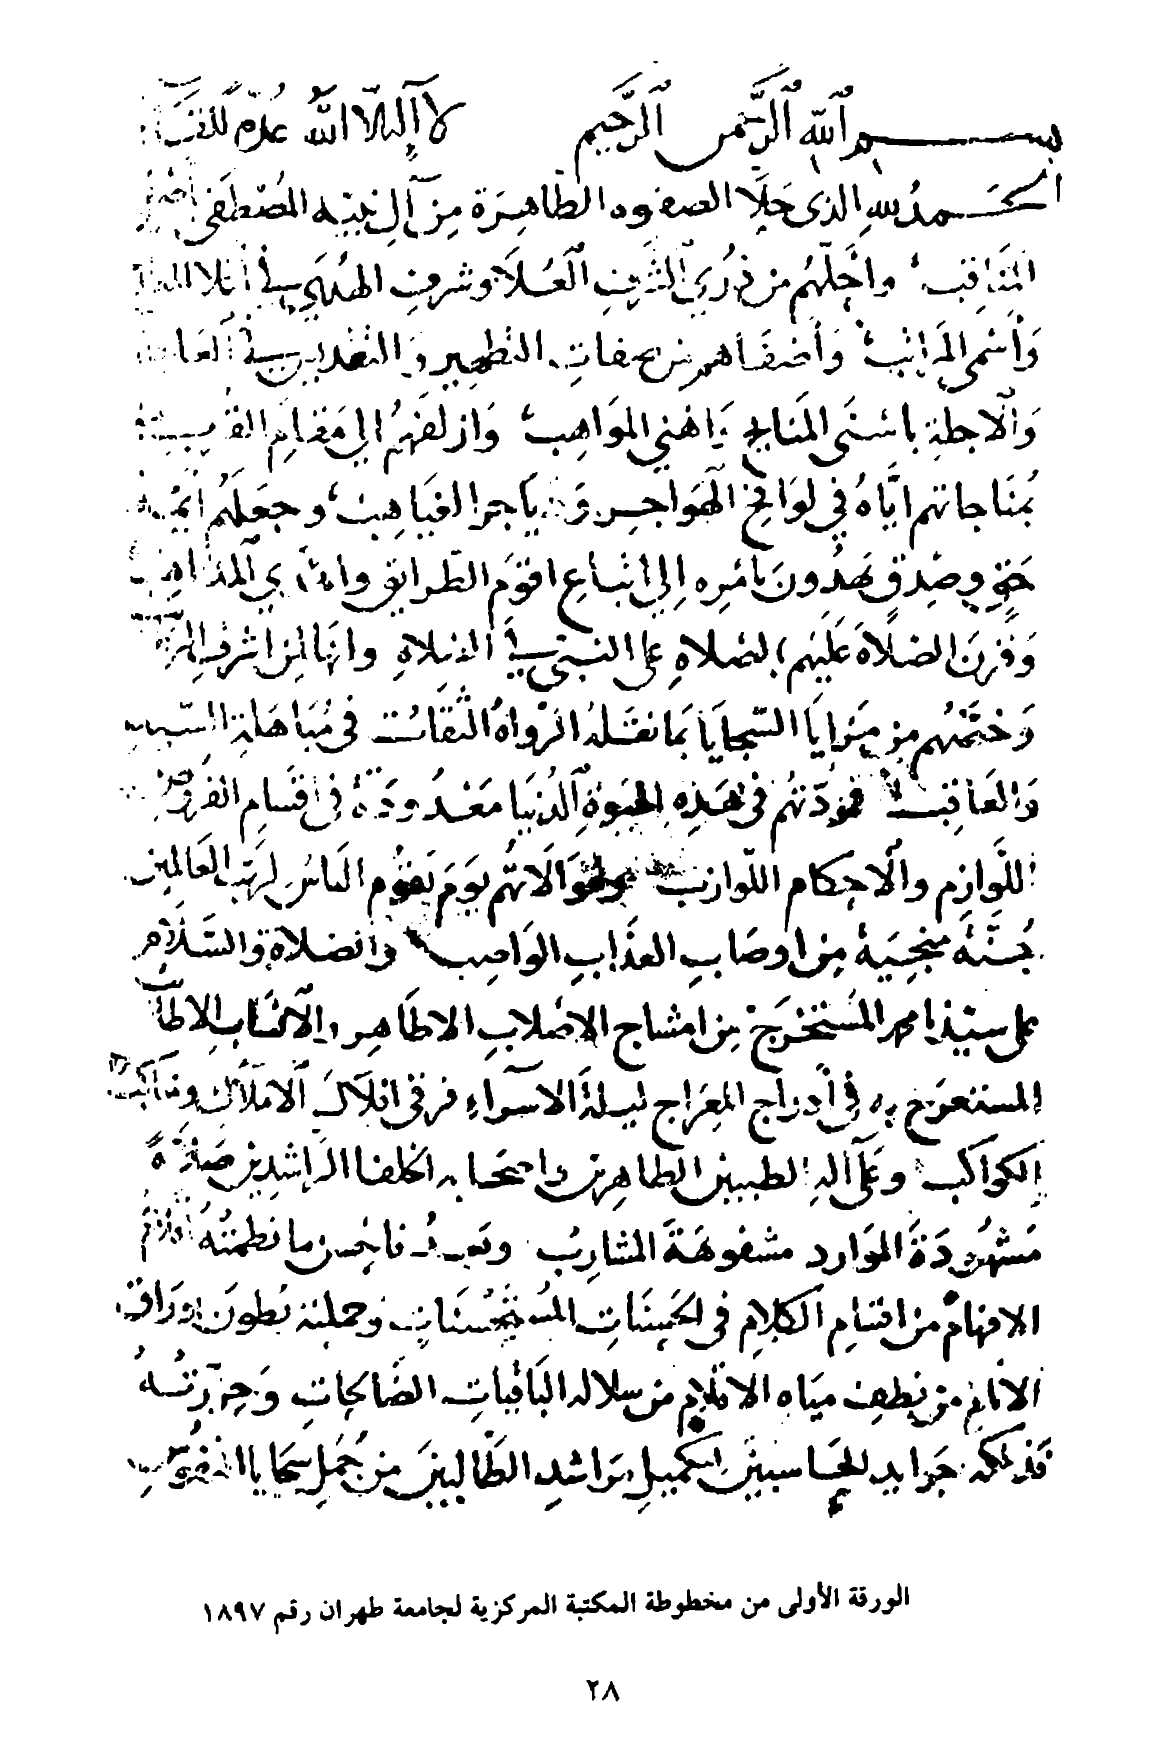 بسم الله الرحمن الرحيم لا إله إلا الله عدة للقاء
الحمد لله الذى جلا الصفوه الطاهِرَة مِن آلِ نبيّه المُصْطَفى
المَنَاقِب وأحَلّهُم مِن ذُرَي الشَّرَفِ العُلاَ وشرفِ
وَأسْمى المَرَاتب وَأضفَاهم من صِفات التطهير والتقديس
وَالاحاطة باسْنَى المَنَايح وَاهْني المَوَاهِب وَازلفَهُم الي مَقامِ القُرب
بمُنَاجاتهم ايَّاهُ في لوَافح الهَوَاجِر وَدياجر الغيَاهِب وجعَلَهُم
حَقٍّ وصِدقٍ يَهدُونَ بامْرِه إلي اتباع اقوَم الطرايق المذاهِب
وَقَرَنَ الصلاَةَ عَلَيهم بالصَلاةِ على النبيّ في الصلاةِ وانّها لمن اشرف
وَخَصَّهُم من مَزَايَا السّجايَا بمَا نقَلهُ الرّواهُ الثّقَات في مُبَاهَلة السّيد
وَالعَاقب فمودّتهُم في هَذِهِ الحيَوةِ الدُنيَا مَعْدُودَة في اقسَام الفروض
اللّوَازِم والاحكام اللّوازب وموَالاتهُم يَوم يَقوُم الناسُ لِرَبّ العَالَمِين
جُنّة مُنجِيَة مِن اوصَابِ العذَابِ الوَاصِب والصلاة والسَّلام
على سيّدنا محمد المُستَخرَج مِن امشاج الاصْلابِ الاطَاهر والانسَابِ الاطايب
المستعرَج به في أدراج المِعرَاج ليلة الاسراءِ فرقى افلاَك الاملاَك ومنَاكب
الكواكب وعَلى آلهِ الطيبين الطاهِرين واصحابه الخلفا الرّاشدِين صَلاَةً
مَشهُودَةَ المَوَارد مشفوهَةَ المشارِب وبَعد فاحسن ما نظمتهُ اقلام
الافهام من اقسَام الكلام في الحَسَنَات المُستحْسَنَاتِ وحملته بُطونَ اورَاق
الانام من نطف ميَاه الاقلام من سلاله البَاقيَات الصَّالِحات وَحرّرتهُ
فذلكه جَرَايد الحَاسبين لتكميل مَرَاشدِ الطَّالبينَ من جُمَل سَجايا النفوُس
الورقة الأولى من مخطوطة المكتبة المركزية لجامعة طهران رقم ١٨٩٧
٢٨